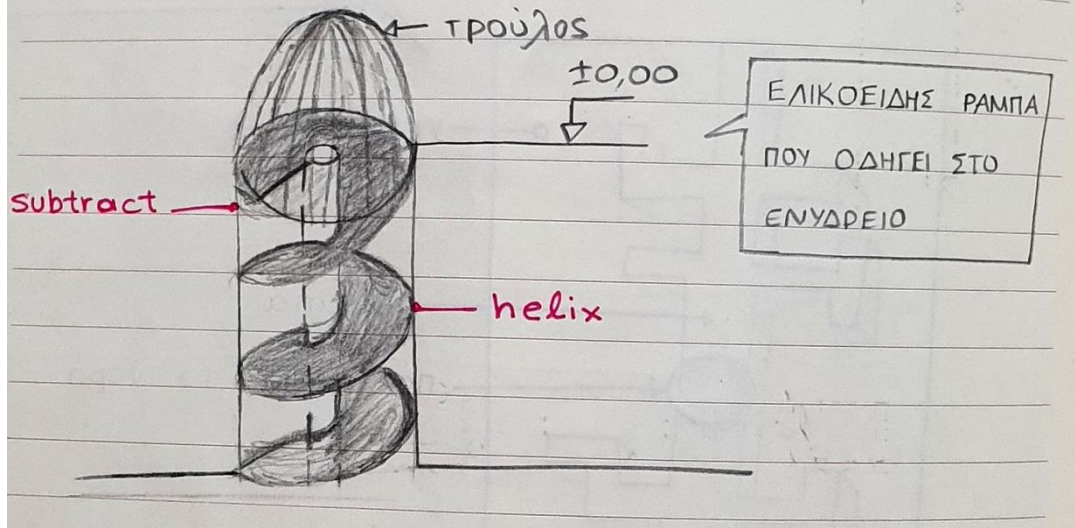 τρούλος
±0,00
ΕΛΙΚΟΕΙΔΗΣ ΡΑΜΠΑ
ΠΟΥ ΟΔΗΓΕΙ ΣΤΟ
ΕΝΥΔΡΕΙΟ
subtract
helix